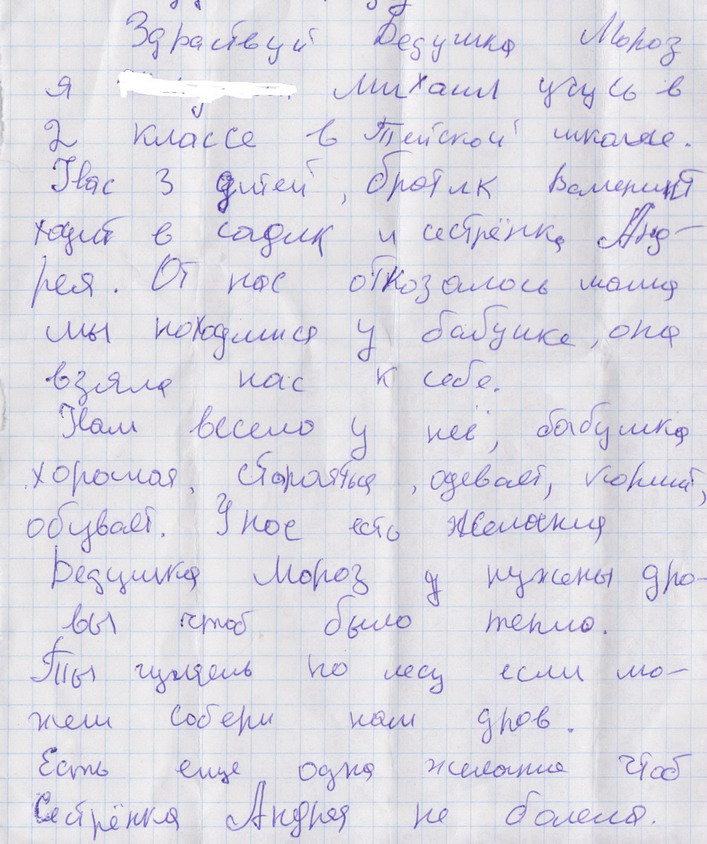 Здраствуй Дедушка Мороз
я Михаил учусь в
2 классе в Тейской школе.
Унас 3 дитей, братик Валерий
ходит в садик и сестрёнка Анд-
рея. От нас отказалось мама
мы находимся у бабушке, она
взяла нас к себе.
Нам весело у неё, бабушка
хорошая, старатья, одевает, кормит,
обувает. Унас есть желания
Дедушка Мороз нужены дро-
вы чтоб было тепло.
Ты гуляешь по лесу если мо-
жеш собери нам дров.
Есть еще одна желания чтоб
Сестрёнка Андрея не болела.